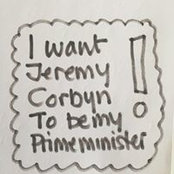 I want
Jeremy
Corbyn
To be my
Prime minister
!